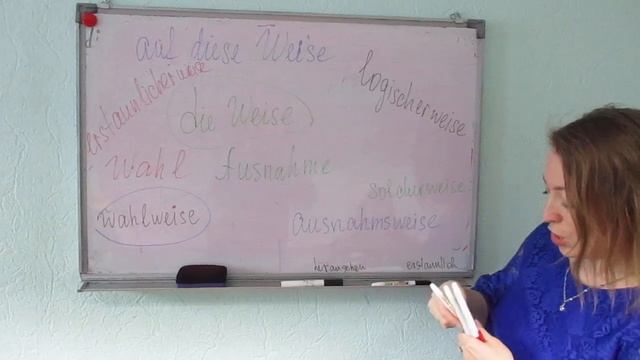 auf diese Weise
erstaunlicherweise
logischerweise
die Weise
Wahl Ausnahme
Wahlweise
ausnahmsweise
erstaunlich